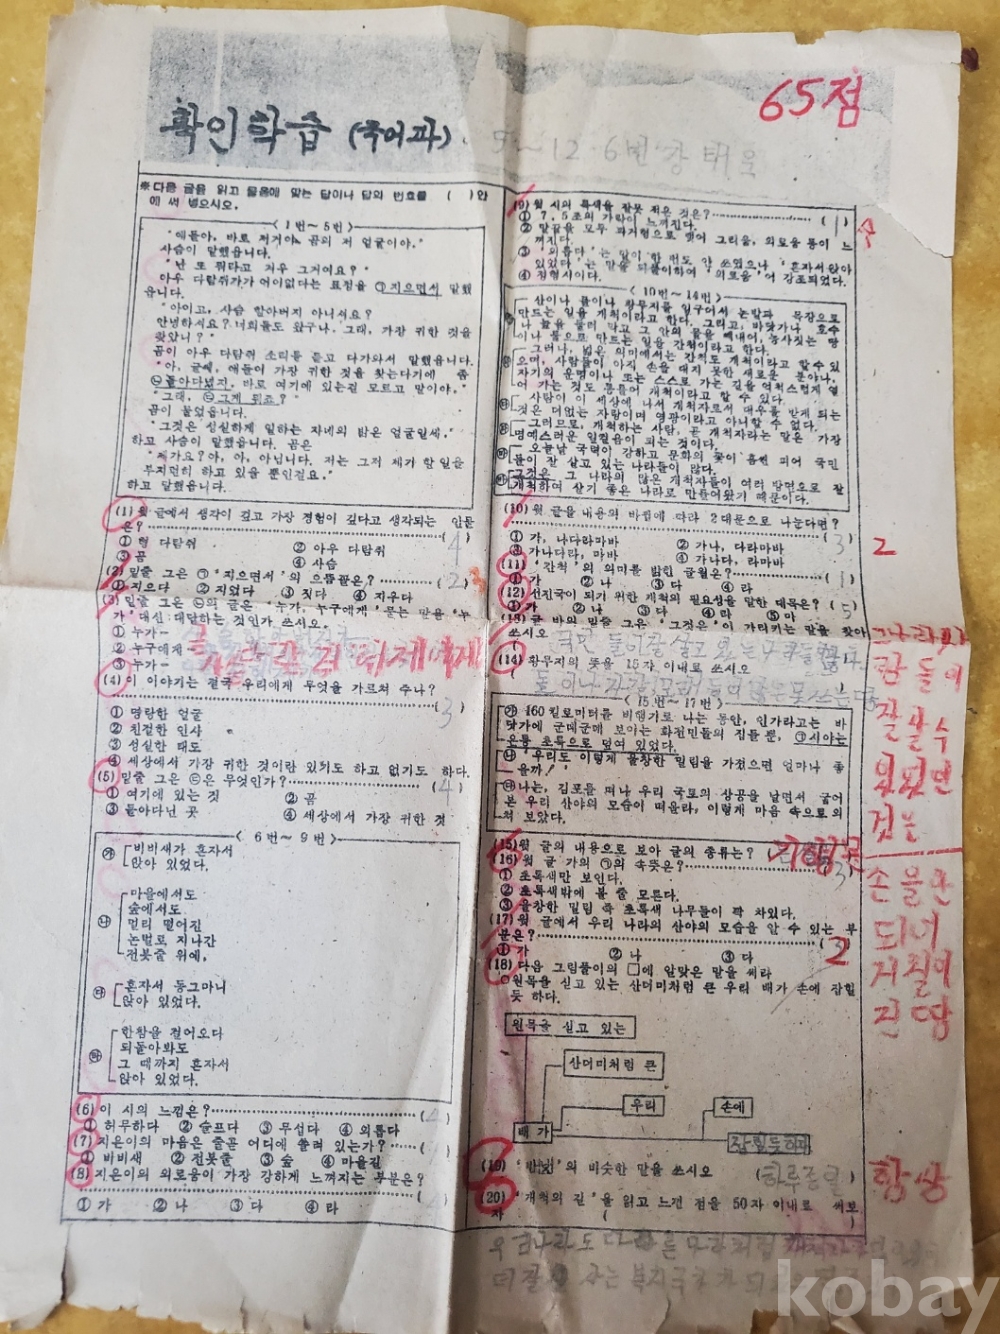 확인학습 (국어과)
5~12.6번
65점
※다음 글을 읽고 물음에 맞는 답이나 답의 번호를 ( )안
에 써 넣으시오.
< 1번~ 5번 >
"얘들아, 바로 저거야. 곰의 저 얼굴이야."
사슴이 말했읍니다.
"난 또 뭐라고 겨우 그거여요?"
아우 다람쥐가 어이없다는 표정을 ㉠지으면서 말했
읍니다.
"아이고, 사슴 할아버지 아니셔요?
안녕하셔요? 너희들도 왔구나. 그래, 가장 귀한 것을
찾았니?"
곰이 아우 다람쥐 소리를 듣고 다가와서 말했읍니다.
"아, 글쎄, 얘들이 가장 귀한 것을 찾는다기에 좀
㉡돌아다녔지. 바로 여기에 있는걸 모르고 말이야."
"그래, ㉢그게 뭐죠?"
곰이 물었읍니다.
"그것은 성실하게 일하는 자네의 밝은 얼굴일세."
하고 사슴이 말했읍니다. 곰은
"제가요? 아, 아, 아닙니다. 저는 그저 제가 할 일을
부지런히 하고 있을 뿐인걸요."
하고 말했읍니다.
(1) 윗 글에서 생각이 깊고 가장 경험이 깊다고 생각되는 인물
은? ( 4 )
① 형 다람쥐 ② 아우 다람쥐
③ 곰 ④ 사슴
(2) 밑줄 그은 ㉠"지으면서"의 으뜸꼴은? ( 2 )
① 지으다 ② 지었다 ③ 짓다 ④ 지우다
(3) 밑줄 그은 ㉡의 글은 "누가, 누구에게" 묻는 말을 "누
가" 대신 대답하는 것인가 쓰시오.
① 누가-
② 누구에게
③ 누가-
(4) 이 이야기는 결국 우리에게 무엇을 가르쳐 주나?
( 3 )
① 명랑한 얼굴
② 친절한 인사
③ 성실한 태도
④ 세상에서 가장 귀한 것이란 있기도 하고 없기도 하다.
(5) 밑줄 그은 ㉢은 무엇인가? ( 4 )
① 여기에 있는 것 ② 곰
③ 돌아다닌 곳 ④ 세상에서 가장 귀한 것
< 6번~ 9번 >
㉮ 비비새가 혼자서
앉아 있었다.
㉯ 마을에서도
숲에서도
멀리 떨어진
논벌로 지나간
전봇줄 위에,
㉰ 혼자서 동그마니
앉아 있었다.
㉱ 한참을 걸어오다
되돌아봐도
그 때까지 혼자서
앉아 있었다.
(6) 이 시의 느낌은? ( 4 )
① 허무하다 ② 슬프다 ③ 무섭다 ④ 외롭다
(7) 지은이의 마음은 줄곧 어디에 쏠려 있는가? ( )
① 비비새 ② 전봇줄 ③ 숲 ④ 마을길
(8) 지은이의 외로움이 가장 강하게 느껴지는 부분은?
① 가 ② 나 ③ 다 ④ 라
(9) 윗 시의 특색을 잘못 적은 것은? ( 1 ) 4
① 7, 5조의 가락이 느껴진다.
② 말끝을 모두 과거형으로 맺어 그리움, 외로움 등이 느
껴진다.
③ "외롭다"는 말이 한 번도 안 쓰였으나 "혼자서앉아
있었다"는 말을 되풀이하여 "외로움"이 강조되었다.
④ 정형시이다.
< 10번~ 14번 >
산이나 들이나 황무지를 일구어서 논밭과 목장으로
만드는 일을 개척이라고 한다. 그리고, 바닷가나 호수
나 늪을 둘러 막고 그 안의 물을 빼내어, 농사짓는 땅
이나 등으로 만드는 일을 간척이라고 한다.
그러나, 넓은 의미에서는 간척도 개척이라고 할수 있
으며, 사람들이 아직 손을 대지 못한 새로운 분야나,
자기의 운명이나 또는 스스로 가는 길을 억척스럽게 열
어 가는 것도 통틀어 개척이라고 할 수 있다.
사람이 이 세상에 나서 개척자로서 대우를 받게 되는
것은 더없는 자랑이며 영광이라고 아니할 수 없다.
그러므로, 개척하는 사람, 곧 개척자라는 말은 가장
명예스러운 일컬음이 되는 것이다.
오늘날 국력이 강하고 문화의 꽃이 흠씬 피어 국민
들이 잘 살고 있는 나라들이 많다.
그것은 그 나라의 많은 개척자들이 여러 방면으로 잘
개척하여 살기 좋은 나라로 만들어왔기 때문이다.
(10) 윗 글을 내용의 바뀜에 따라 2대문으로 나눈다면?
( 3 ) 2
① 가, 나다라마바 ② 가나, 다라마바
③ 가나다라, 마바 ④ 가나다, 라마바
(11) "간척"의 의미를 밝힌 글월은? ( 1 )
① 가 ② 나 ③ 다 ④ 라
(12) 선진국이 되기 위한 개척의 필요성을 말한 대목은? ( 5 )
① 가 ② 나 ③ 다 ④ 라 ⑤ 마
(13) 글 바의 밑줄 그은 "그것은"이 가리키는 말을 찾아
쓰시오
(14) 황무지의 뜻을 15자 이내로 쓰시오
< 15번~ 17번 >
㉮ 160킬로미터를 비행기로 나는 동안, 인가라고는 바
닷가에 군데군데 보이는 화전민들의 집들 뿐, ㉠시야는
온통 초록으로 덮여 있었다.
㉯ 우리도 이렇게 울창한 밀림을 가졌으면 얼마나 좋
을까!
㉰ 나는, 김포를 떠나 우리 국토의 상공을 날면서 굽어
본 우리 산야의 모습이 떠올라, 이렇게 마음 속으로 외
쳐 보았다.
(15) 윗 글의 내용으로 보아 글의 종류는? 기행문
(16) 윗 글 가의 ㉠의 속뜻은? 3
① 초록색만 보인다.
② 초록색밖에 볼 줄 모른다.
③ 울창한 밀림 즉 초록색 나무들이 꽉 차있다.
(17) 윗 글에서 우리 나라의 산야의 모습을 알 수 있는 부
분은? 2
① 가 ② 나 ③ 다
(18) 다음 그림풀이의 □에 알맞은 말을 써라
○원목을 싣고 있는 산더미처럼 큰 우리 배가 손에 잡힐
듯 하다.
원목을 싣고 있는
산더미처럼 큰
우리
손에
배가
잡힐듯하다
(19) "밤낮"의 비슷한 말을 쓰시오 (하루종일) 항상
(20) "개척의 길"을 읽고 느낀 점을 50자 이내로 써보
자 ( )
잘 살수
있었던
것은
손을 안
되어
거칠어
진 땅
kobay